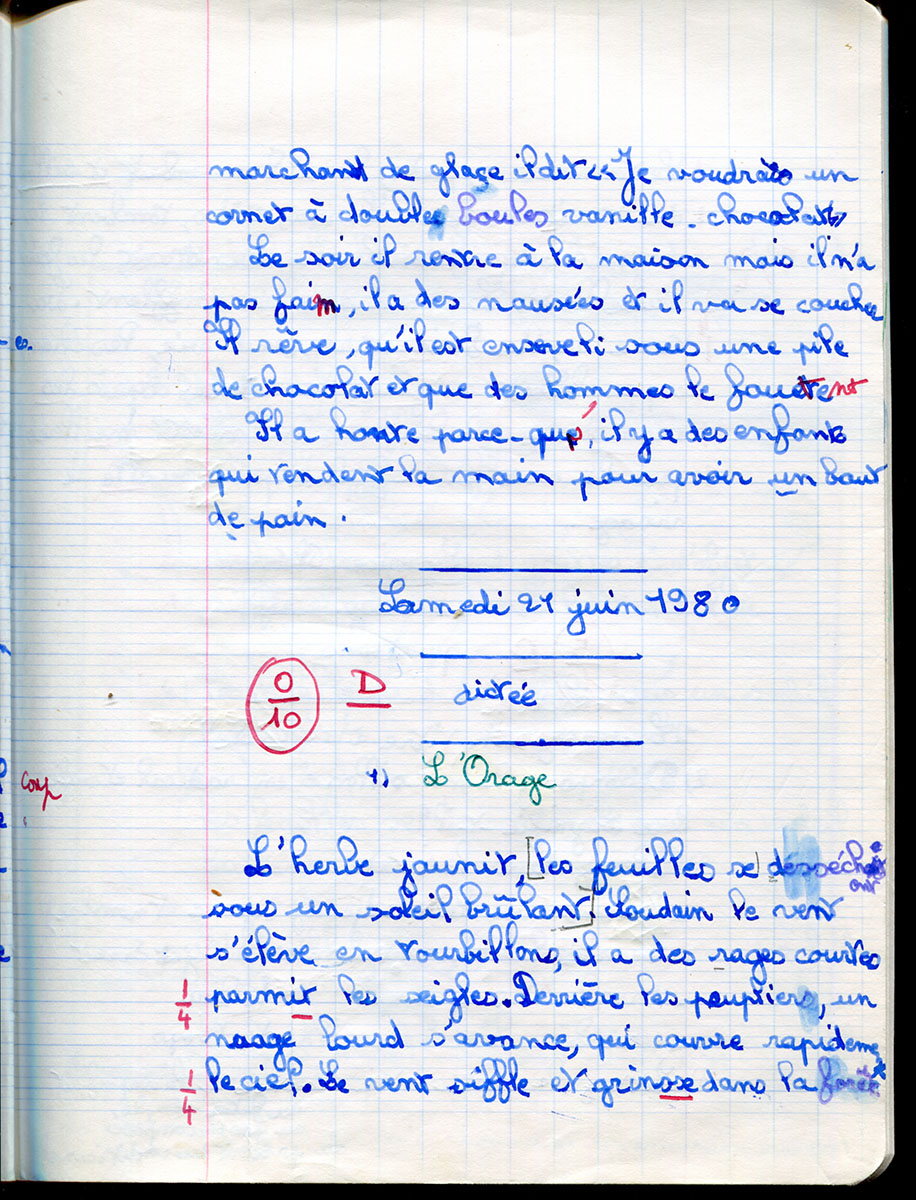 marchant de glaçe il dit << Je voudrais un
cornet à double boules vanille - chocolat >>
Le soir il rentre à la maison mais il n'a
pas faim, il a des nausées et il va se coucher
es.
Il rêve, qu'il est enseveli sous une pile
de chocolat et que des hommes le fouettent
Il a honte parce-que, il y a des enfants
qui tendent la main pour avoir un bout
de pain.
Samedi 21 juin 1980
0/10 D dictée
1) L'Orage
Corp
L'herbe jaunit, [les feuilles se désséchent
sous un soleil brûlant]. Soudain le vent
s'élève en tourbillons, il a des rages courtes
1/4 parmit les seigles. Derrière les peupliers, un
nuage lourd s'avance, qui couvre rapideme
1/4 le ciel. Le vent siffle et grinse dans la forêt